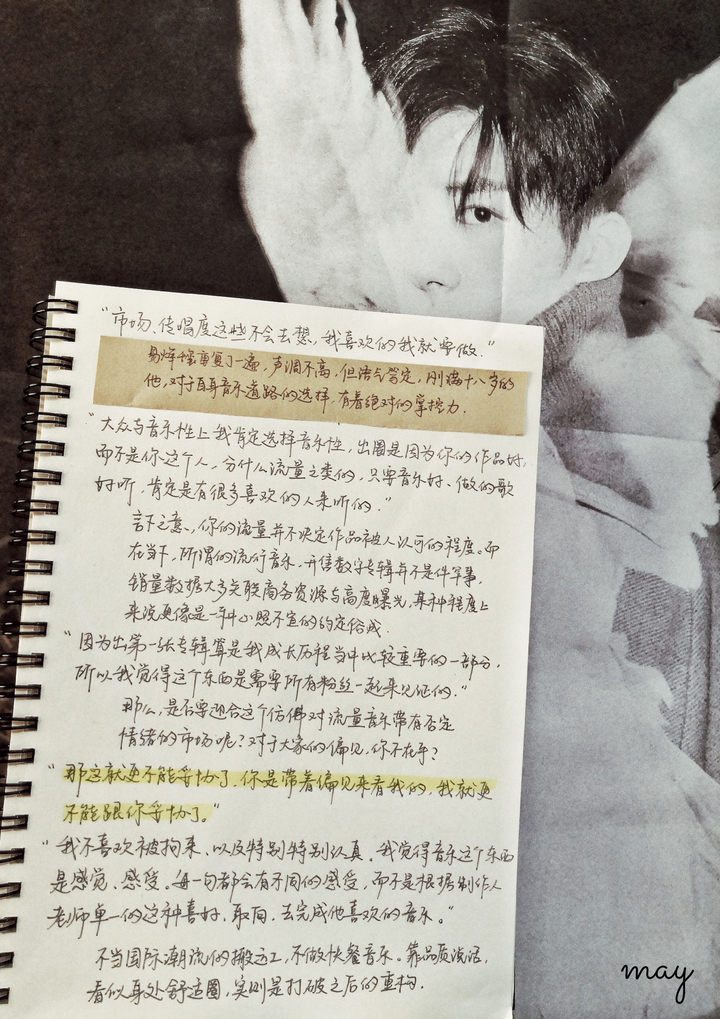 “市场、传唱度这些不会去想，我喜欢的我就要做.”
易烊千玺重复了一遍，声调不高，但语气笃定，刚满十八岁的
他，对于自身音乐道路的选择，有着绝对的掌控力.
“大众与音乐性上我肯定选择音乐性，出圈是因为你的作品好，
而不是你这个人，分什么流量之类的，只要音乐好、做的歌
好听，肯定是有很多喜欢的人来听的.”
言下之意，你的流量并不决定作品被人认可的程度。而
在当下，所谓的流行音乐，开售数字专辑并不是件罕事，
销量数据大多关联商务资源与高度曝光，某种程度上
来说更像是一种心照不宣的约定俗成.
“因为出第一张专辑算是我成长历程当中比较重要的一部分，
所以我觉得这个东西是需要所有粉丝一起来见证的.”
那么，是否要迎合这个仿佛对流量音乐带有否定
情绪的市场呢？对于大家的偏见，你不在乎？
“那这就更不能妥协了，你是带着偏见来看我的，我就更
不能跟你妥协了。”
“我不喜欢被拘束、以及特别特别认真，我觉得音乐这个东西
是感觉、感受。每一句都会有不同的感受，而不是根据制作人
老师单一的这种喜好、取向，去完成他喜欢的音乐。”
不当国际潮流的搬运工，不做快餐音乐。靠品质说话，
看似身处舒适圈，实则是打破之后的重构.
may